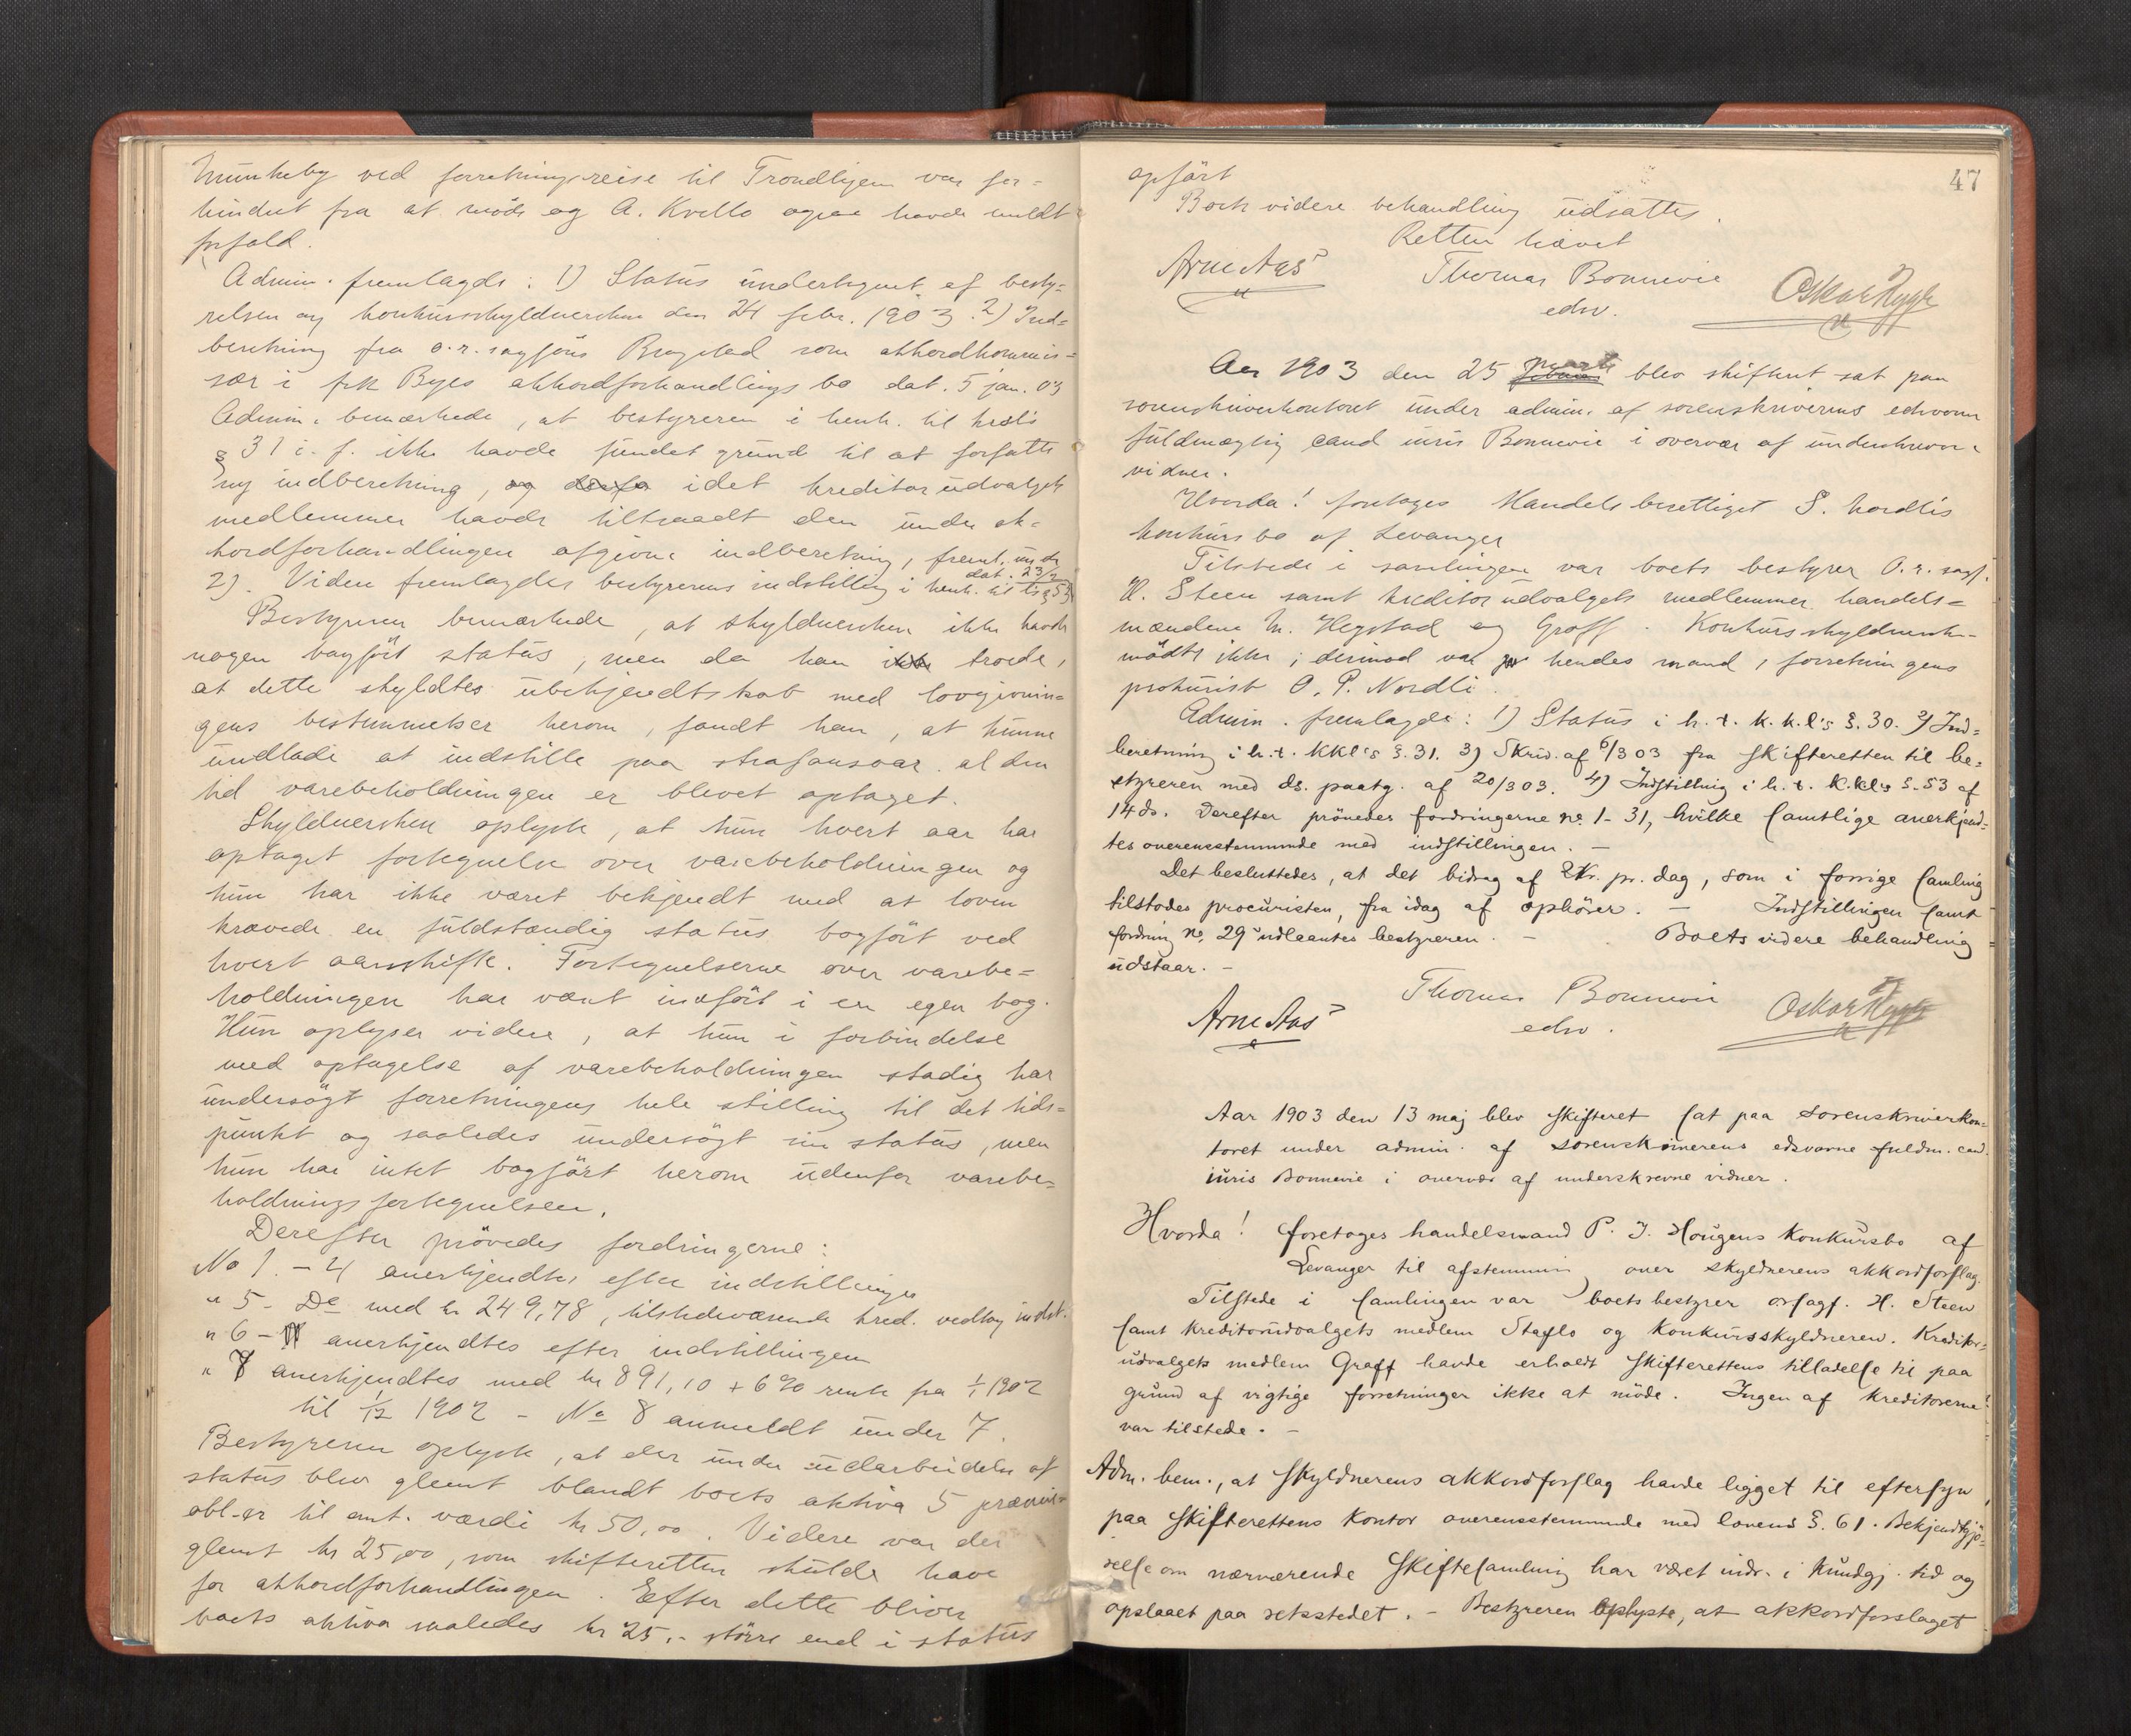 Munkeby ved forretningsreise til Trondhjem var for-
hindret fra at møde og A. Kvello ogsaa havde meldt
forfald.
Admin. fremlagde: 1) Status undertegnet af besty-
relsen og konkursskyldnersken den 24 febr. 1903. 2) Ind-
beretning fra o.r.sagfører Bragstad som akkordkommis-
sær i frk Byes akkordforhandlings bo dat. 5 jan. 03
Admin. bemærkede, at bestyreren i henh. til
§ 31 i. f. ikke havde fundet grund til at forfatte
ny indberetning, og idet kreditorudvalgets
medlemmer havde tiltraadt den under ak-
kordforhandlingen afgivne indberetning, freml. under
2). Videre fremlagdes bestyrerens indstilling dat. 23/2 i henh. til § 53
Bestyreren bemærkede, at skyldnersken ikke havde
nogen bogført status, men da han ikke troede,
at dette skyldtes ubekjendtskab med lovgivnin-
gens bestemmelser herom, fandt han, at kunne
undlade at indstille paa strafansvar al den
tid varebeholdningen er blevet optaget.
Skyldnersken oplyste, at hun hvert aar har
optaget fortegnelse over varebeholdningen og
hun har ikke været bekjendt med at loven
krævede en fuldstændig status bogført ved
hvert aarsskifte. Fortegnelserne over varebe-
holdningen har været indført i en egen bog.
Hun oplyser videre, at hun i forbindelse
med optagelse af varebeholdningen stadig har
undersøgt forretningens hele stilling til det tids-
punkt og saaledes undersøgt sin status, men
hun har intet bogført herom udenfor varebe-
holdningsfortegnelsen.
Derefter prøvedes fordringerne:
No 1 - 4 anerkjendtes efter indstillingen
" 5 - De med kr 249,78, tilstedeværende kred. vedtog indst.
" 6 - anerkjendtes efter indstillingen
" 7 anerkjendtes med kr 891,10 + 6% rente fra 1/1 1902
til 1/12 1902 - No 8 anmeldt under 7.
Bestyreren oplyste, at der under udarbeidelse af
status blev glemt blandt boets aktiva 5 præmie-
obl.er til ant. værdi kr 50,00. Videre var der
glemt kr 25,00, som skifteretten skulde have
for akkordforhandlingen. Efter dette bliver
boets aktiva saaledes kr 25,- større end i status
47
opført
Boets videre behandling udsattes.
Retten hævet
Thomas Bonnevie
edsv.
Arne Aas
Oskar Rygh
Aar 1903 den 25 februar marts blev skifteret sat paa
sorenskriverkontoret under admin. af sorenskriverens edsvorne
fuldmægtig cand iuris Bonnevie i overvær af underskrevne
vidner.
Hvorda! foretoges Handelsberettiget S. Nordlis
konkursbo af Levanger
Tilstede i samlingen var boets bestyrer O.r. sagf.
H. Steen samt kreditorudvalgets medlemmer handels-
mændene M. Hegstad og Graff. Konkursskyldnersken
mødte ikke; derimod var hendes mand, forretningens
prokurist O. P. Nordli.
Admin. fremlagde: 1) Status i h. t. k.k.l's §. 30. 2) Ind-
beretning i h. t. KKl's §. 31. 3) Skriv. af 6/3 03 fra skifteretten til be-
styreren med ds. paateg. af 20/3 03. 4) Indstilling i h. t. K.kl's §. 53 af
14 ds. Derefter prøvedes fordringerne no. 1-31, hvilke samtlige anerkjend-
tes overensstemmende med indstillingen. -
Det besluttedes, at det bidrag af 2 Kr. pr. dag, som i forrige samling
tilstodes procuristen, fra idag af ophører. - Indstillingen samt
fordring no. 29 udlaantes bestyreren. - Boets videre behandling
udstaar. -
Thomas Bonnevie
edsv.
Arne Aas
Oskar Rygh
Aar 1903 den 13 maj blev skifteret sat paa sorenskriverkon-
toret under admin. af sorenskriverens edsvorne fuldm. cand.
iuris Bonnevie i overvær af underskrevne vidner.
Hvorda! foretoges handelsmand P. J. Hougens konkursbo af
Levanger til afstemning over skyldnerens akkordforslag.
Tilstede i samlingen var boets bestyrer orsagf. H. Steen
samt kreditorudvalgets medlem Staflo og konkursskyldneren. Kreditor-
udvalgets medlem Graff havde erholdt skifterettens tilladelse til paa
grund af vigtige forretninger ikke at møde. Ingen af kreditorerne
var tilstede. -
Adm. bem., at skyldnerens akkordforslag havde ligget til eftersyn
paa skifterettens kontor overensstemmende med lovens §. 61. Bekjendtgjø-
relse om nærværende skiftesamling har været indr. i Kundgj. tid og
opslaaet paa retsstedet. - Bestyreren oplyste, at akkordforslaget